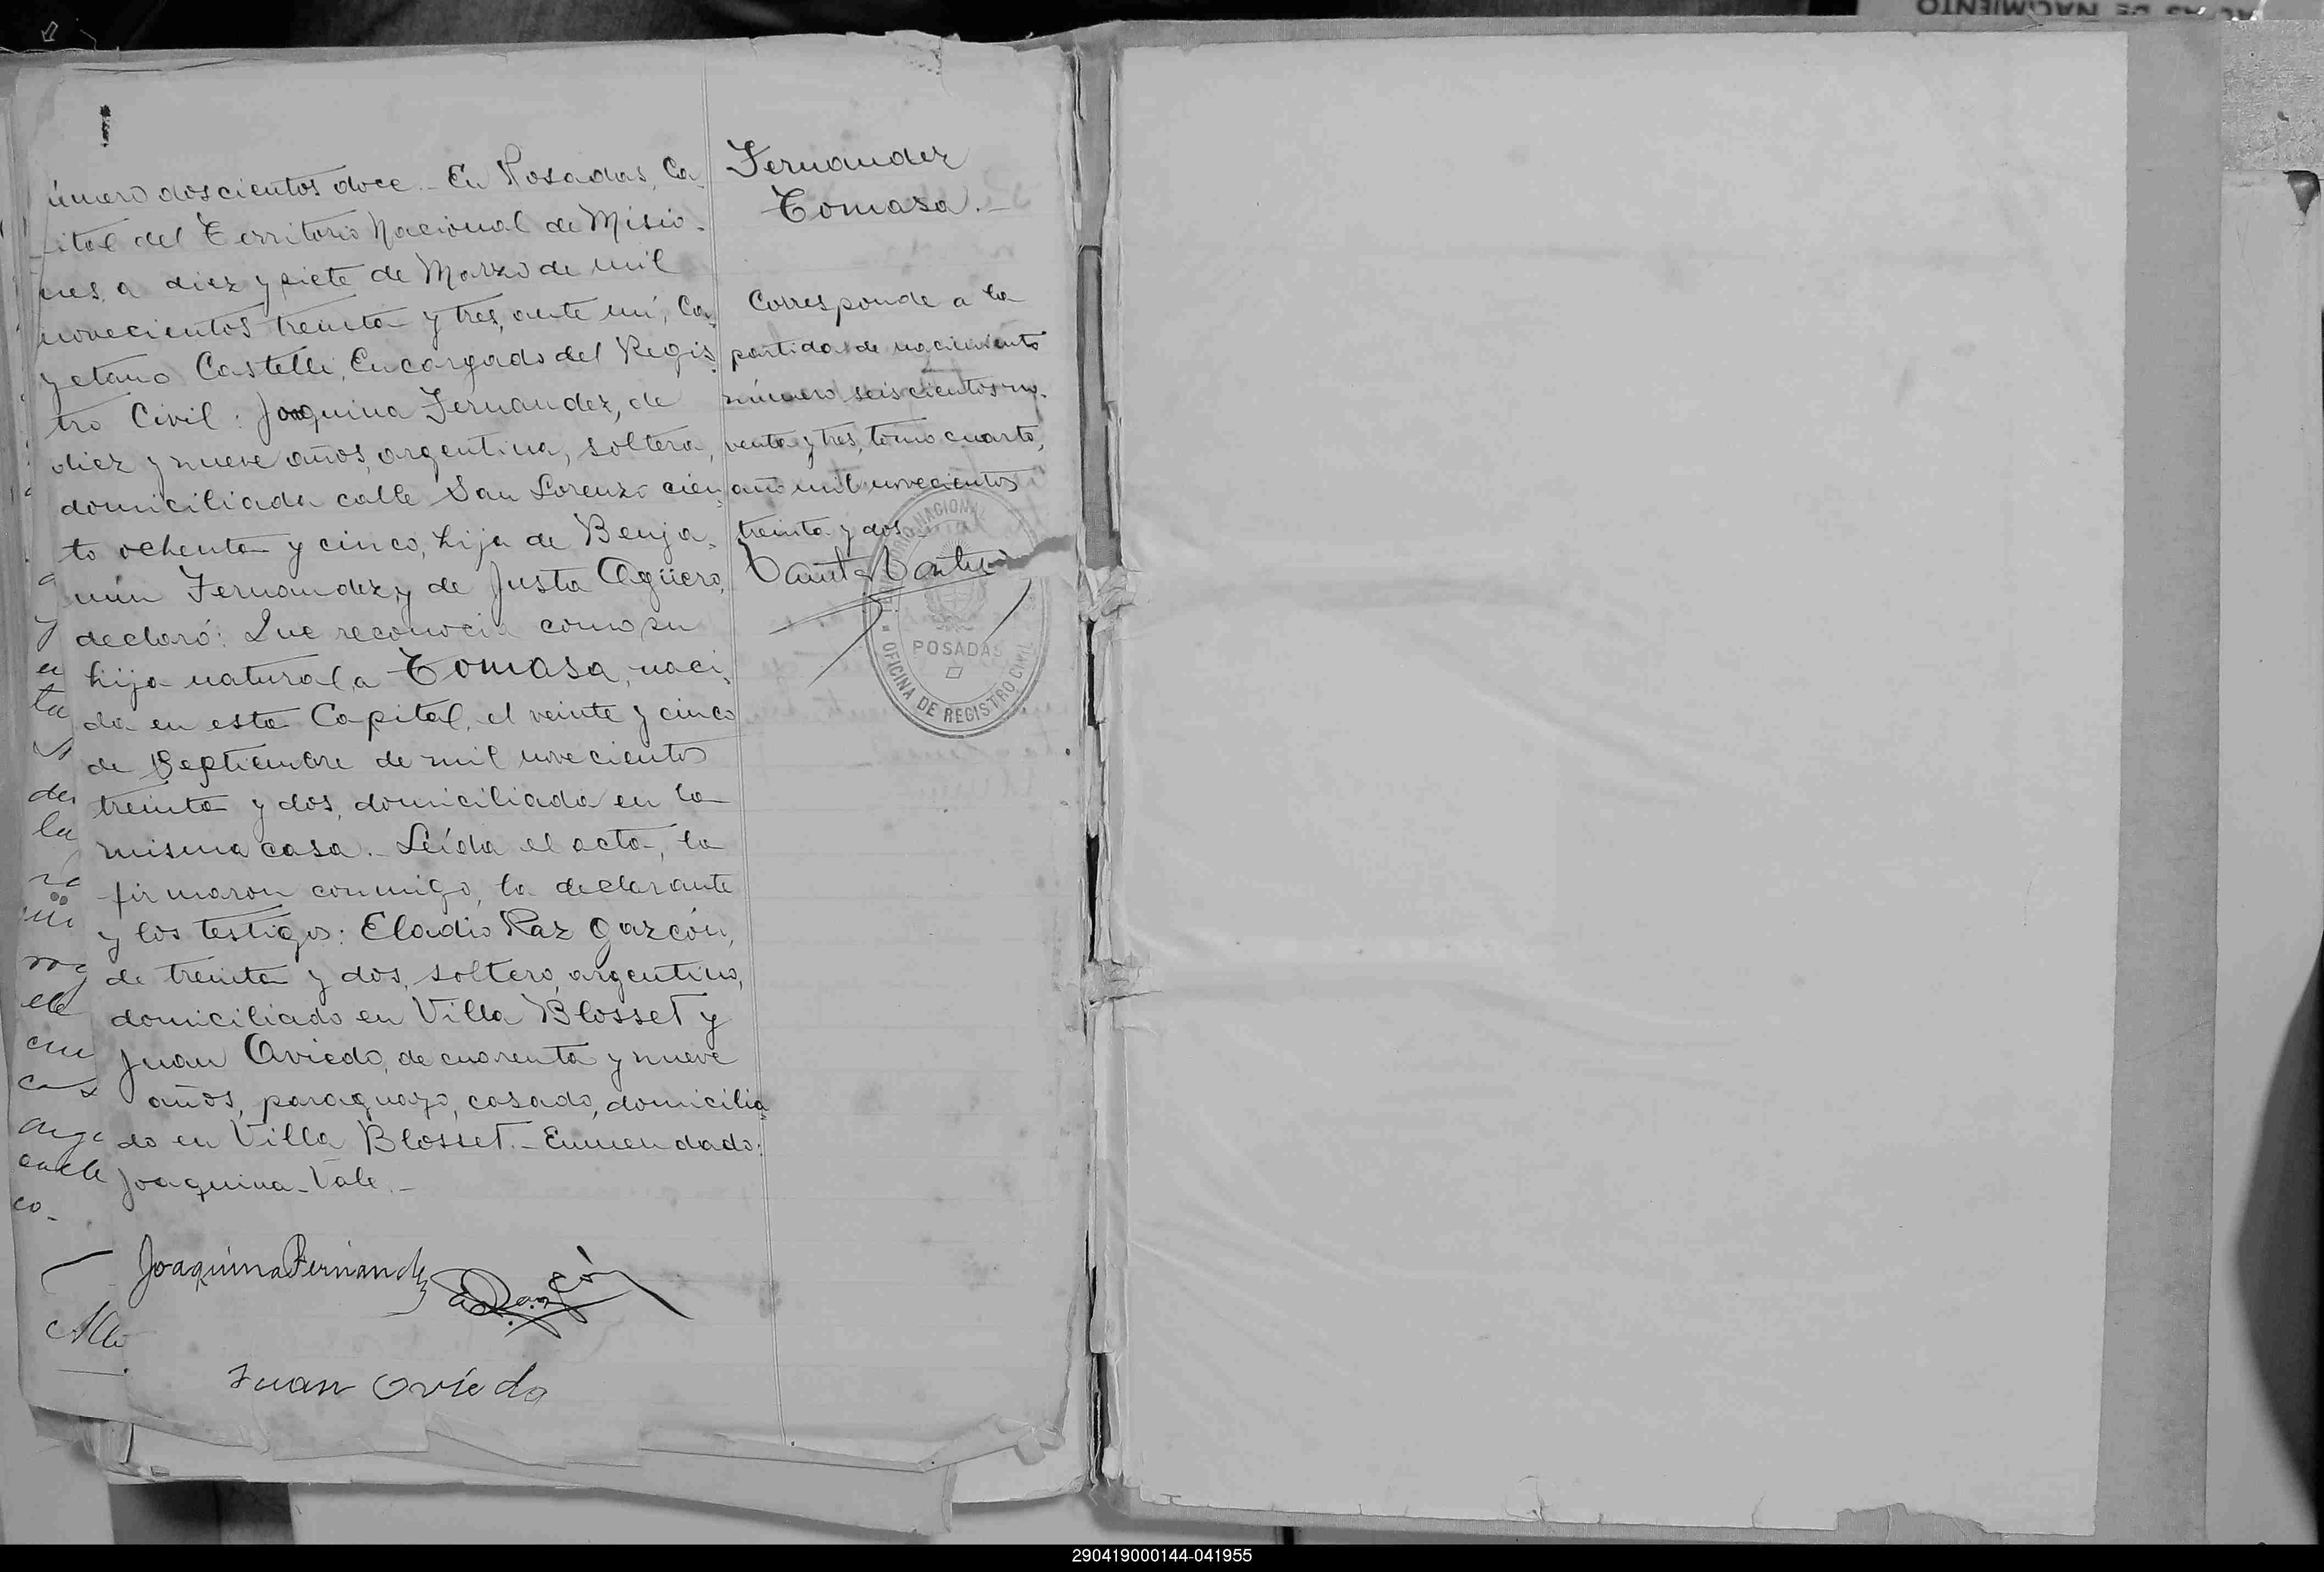 úmero doscientos doce.- En Posadas, Ca-
ital del Territorio Nacional de Misio-
nes, a diez y siete de Marzo de mil
novecientos treinta y tres, ante mí, Ca-
yetano Castelli, Encargado del Regis-
tro Civil: Joaquina Fernandez, de
diez y nueve años, argentina, soltera,
domiciliada calle San Lorenzo cien-
to ochenta y cinco, hija de Benja-
mín Fernandez, y de Justa Agüero,
declaró: Que reconocía como su
hija natural, a Tomasa, naci-
da en esta Capital, el veinte y cinco
de Septiembre de mil novecientos
treinta y dos, domiciliada en la
misma casa.- Leída el acta, la
firmaron conmigo, la declarante
y los testigos: Eladio Paz Garzón,
de treinta y dos, soltero, argentino,
domiciliado en Villa Blosset y
Juan Oviedo, de cuarenta y nueve
años, paraguayo, casado, domicilia-
do en Villa Blosset.- Enmendado:
Joaquina-Vale.-
Joaquina Fernandez
Juan Oviedo
Fernandez
Tomasa.-
Corresponde a la
partida de nacimiento
número seiscientos no-
venta y tres, tomo cuarto,
año mil novecientos
treinta y dos
NACIONAL
POSADAS
OFICINA DE REGISTRO CIVIL
ta
der
la
Alb
co.-
NACIMIENTO
290419000144-041955